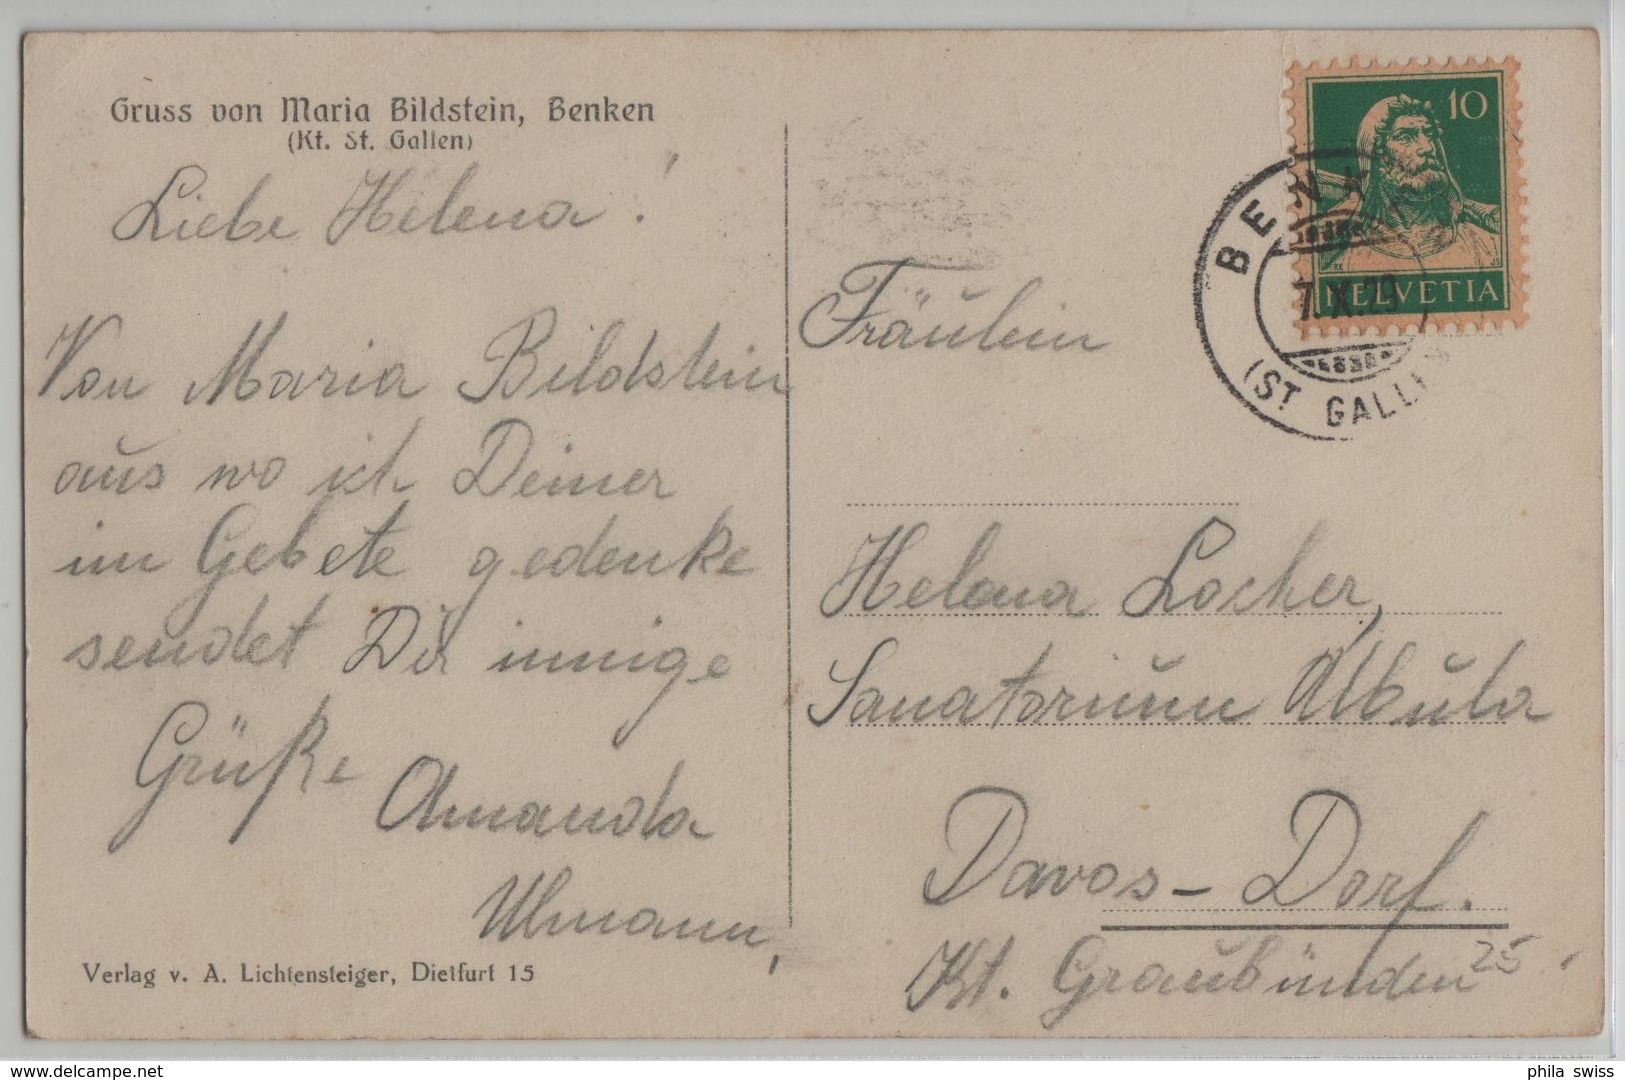 Gruss von Maria Bildstein, Benken
(Kt. St. Gallen)
Liebe Helena!
Von Maria Bildstein
aus wo ich Deiner
im Gebete gedenke
sendet Dir innige
Grüße Amanda
Ulmann,
Verlag v. A. Lichtensteiger, Dietfurt 15
10
HELVETIA
BENKEN
7.X.29
(ST GALLEN)
Fräulein
Helena Locher,
Sanatorium Albula
Davos-Dorf.
Kt. Graubünden
25
phila swiss
delcampe.net